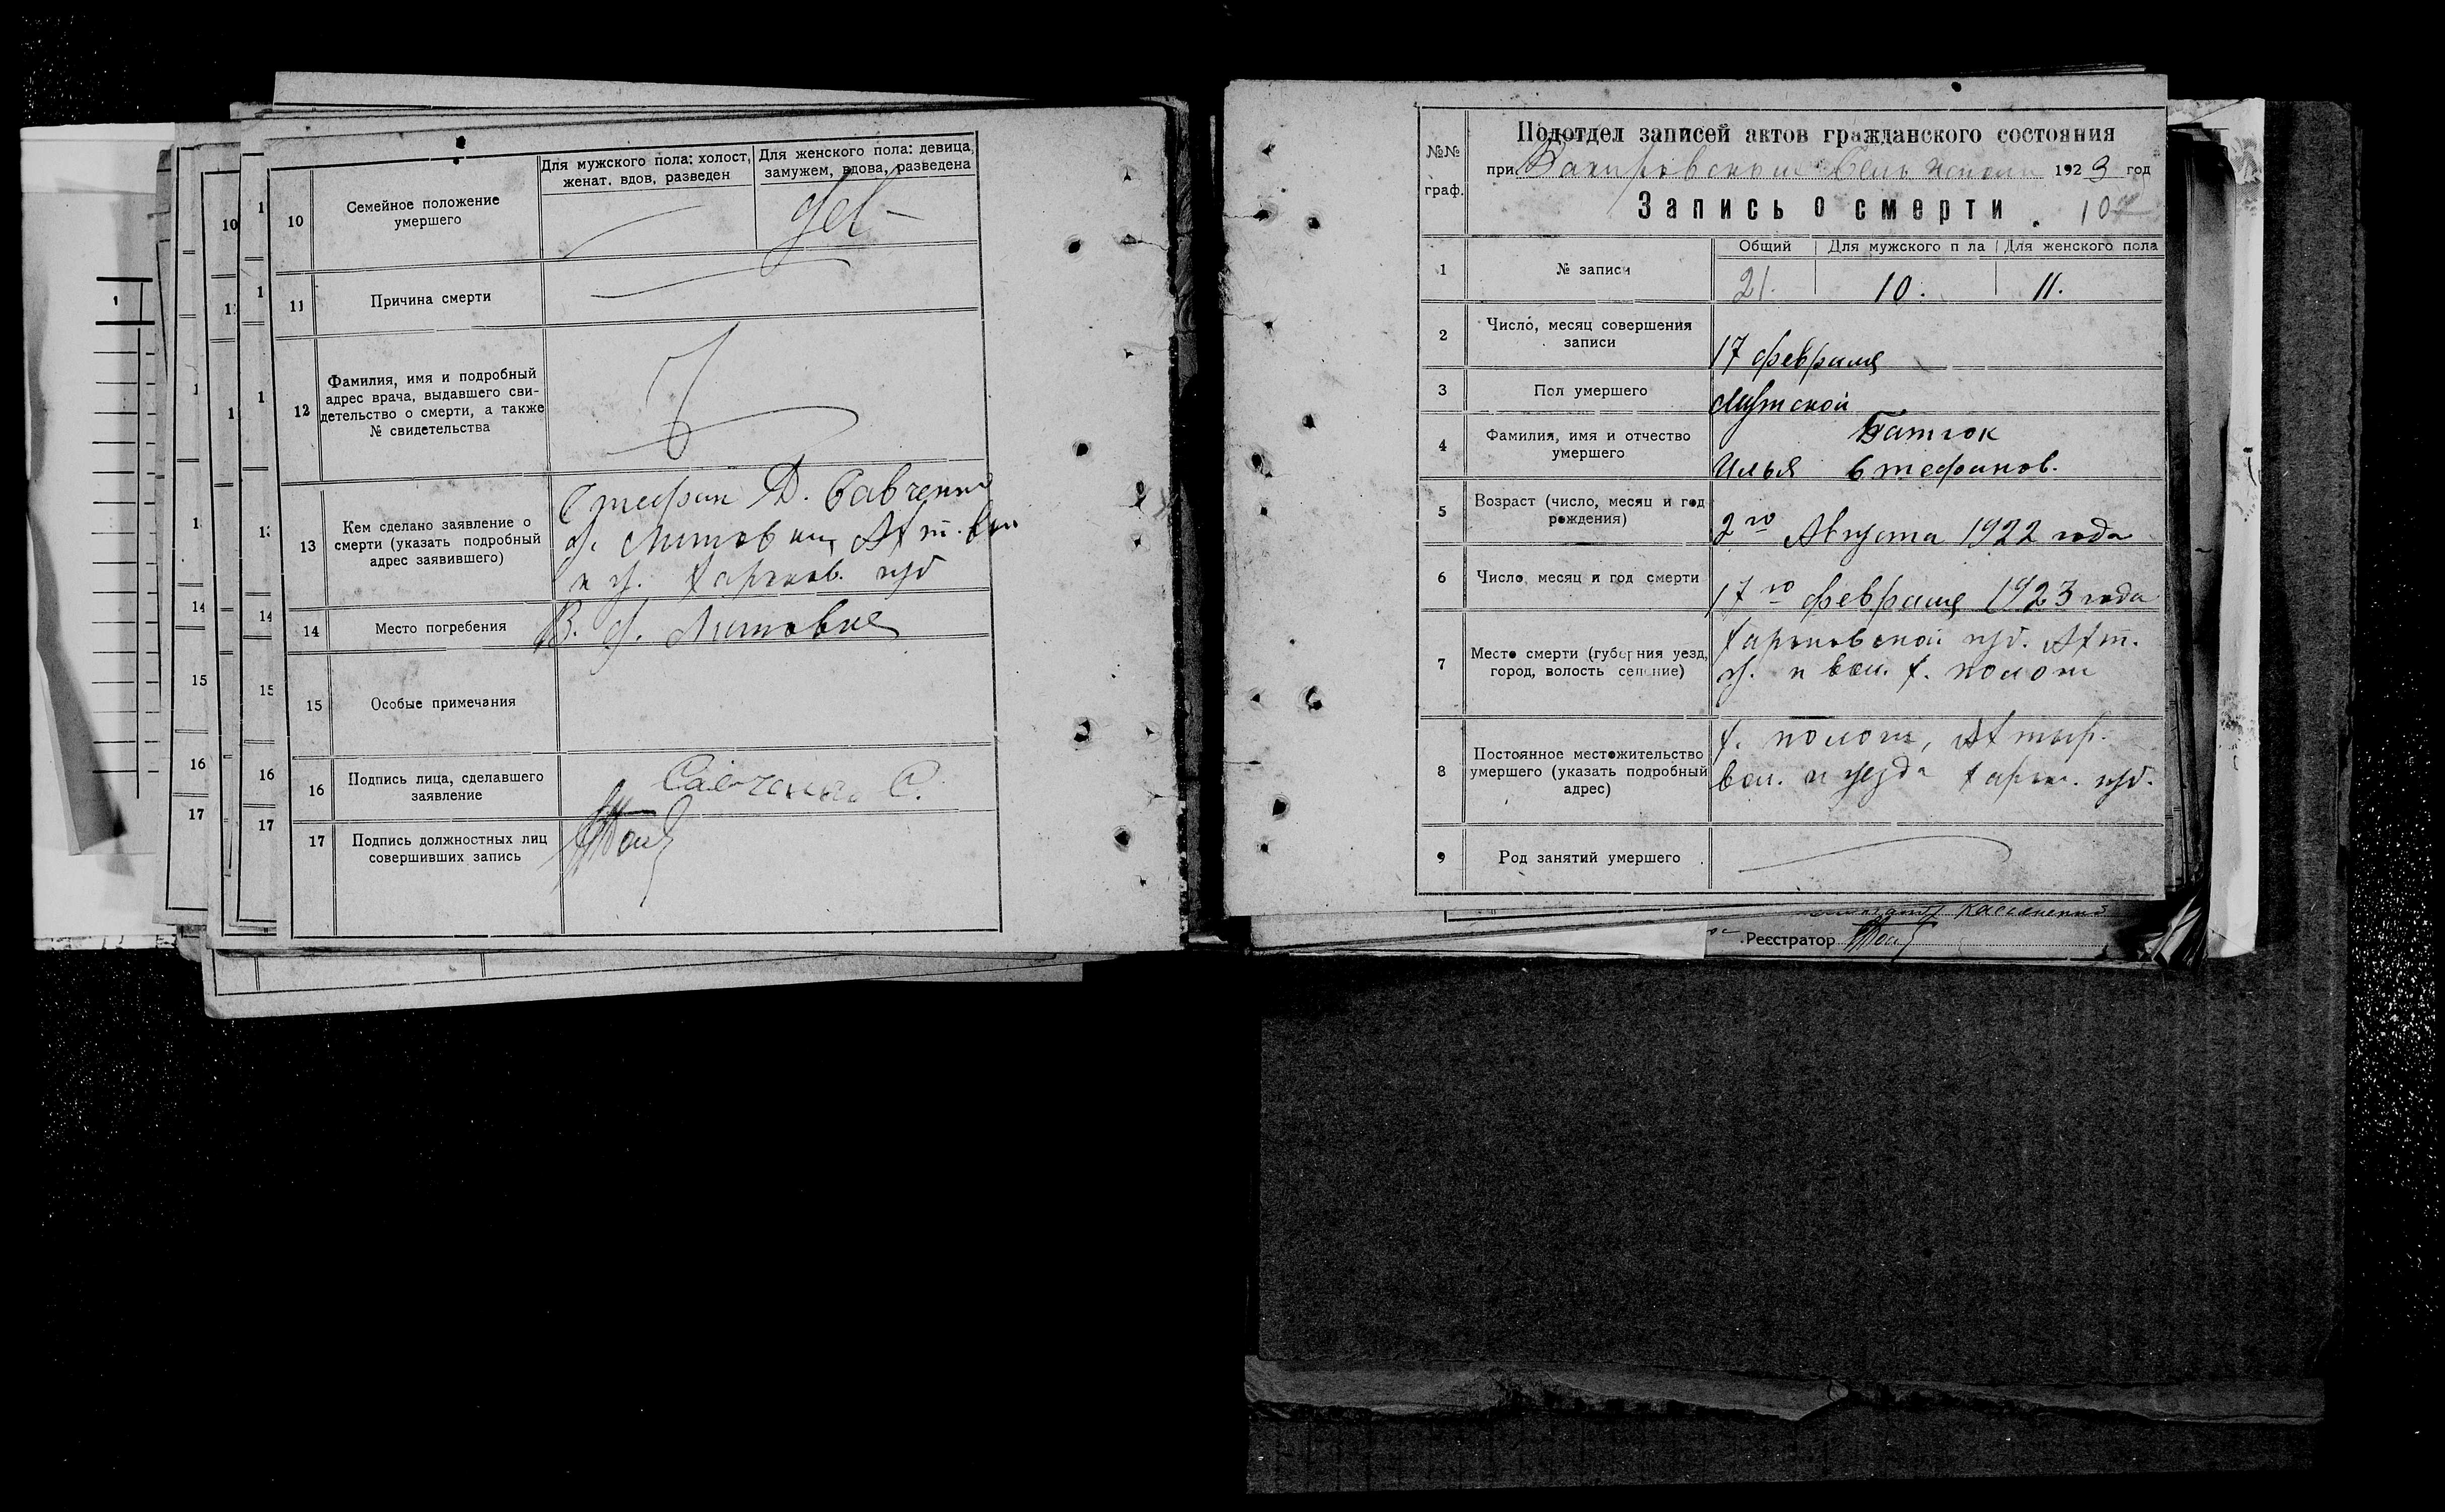 10
Семейное положение
умершего
Для мужского пола: холост,
женат, вдов, разведен
Для женского пола: девица,
замужем, вдова, разведена
дев
11
Причина смерти
12
Фамилия, имя и подробный
адрес врача, выдавшего сви-
детельство о смерти, а также
№ свидетельства
13
Кем сделано заявление о
смерти (указать подробный
адрес заявившего)
Стефан Д. Савченко
Ахт. вол
и у. Харьков. губ
14
Место погребения
В. Литовке
15
Особые примечания
16
Подпись лица, сделавшего
заявление
Савченко С.
17
Подпись должностных лиц
совершивших запись
№№
граф.
Подотдел записей актов гражданского состояния
при 1923 год
Запись о смерти
1
№ записи
Общий
Для мужского п ла
Для женского пола
21.
10.
11.
2
Число, месяц совершения
записи
17 февраля
3
Пол умершего
Мужской
4
Фамилия, имя и отчество
умершего
Батюк
Илья Стефанов.
5
Возраст (число, месяц и год
рождения)
2го Августа 1922 года
6
Число, месяц и год смерти
17го февраля 1923 года
7
Место смерти (губерния уезд,
город, волость селение)
Харьковской губ. Ахт.
у. и вол. х.
8
Постоянное местожительство
умершего (указать подробный
адрес)
х. Ахтыр.
вол. и уезда Харьк. губ.
9
Род занятий умершего
Реестратор